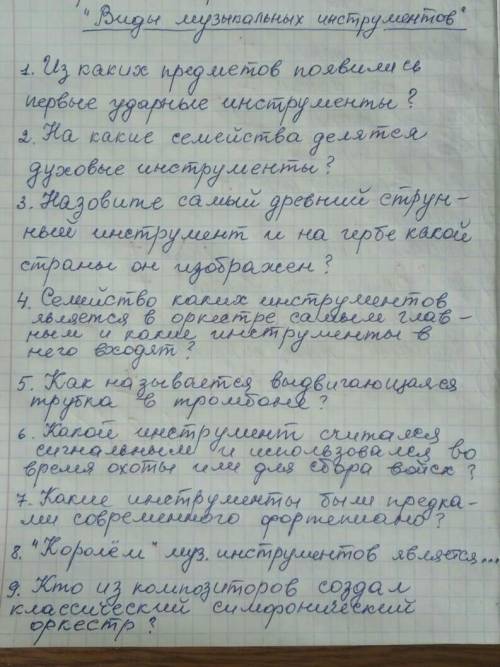 "Виды музыкальных инструментов"
1. Из каких предметов появились
первые ударные инструменты?
2. На какие семейства делятся
духовые инструменты?
3. Назовите самый древний струн-
ный инструмент и на гербе какой
страны он изображен?
4. Семейство каких инструментов
является в оркестре самым глав-
ным и какие инструменты в
него входят?
5. Как называется выдвигающаяся
трубка в тромбоне?
6. Какой инструмент считался
сигнальным и использовался во
время охоты или для сбора войск?
7. Какие инструменты были предка-
ми современного фортепиано?
8. "Королём" муз. инструментов является...
9. Кто из композиторов создал
классический симфонический
оркестр?